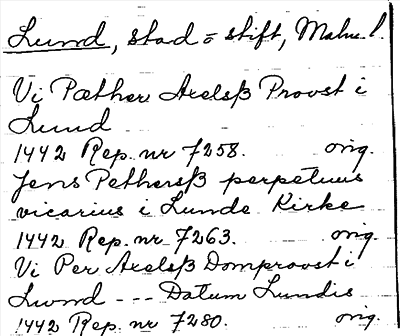 Lund, stad o stift, Malm. l.
Vi Pæther Axelsß Provst i
Lund
1442 Rep. nr 7258. orig.
Jens Pethersß perpetuus
vicarius i Lunde Kirke
1442 Rep. nr 7263. orig.
Vi Per Axelsß Domprovst i
Lwnd --- Datum Lundis
1442 Rep. nr 7280. orig.